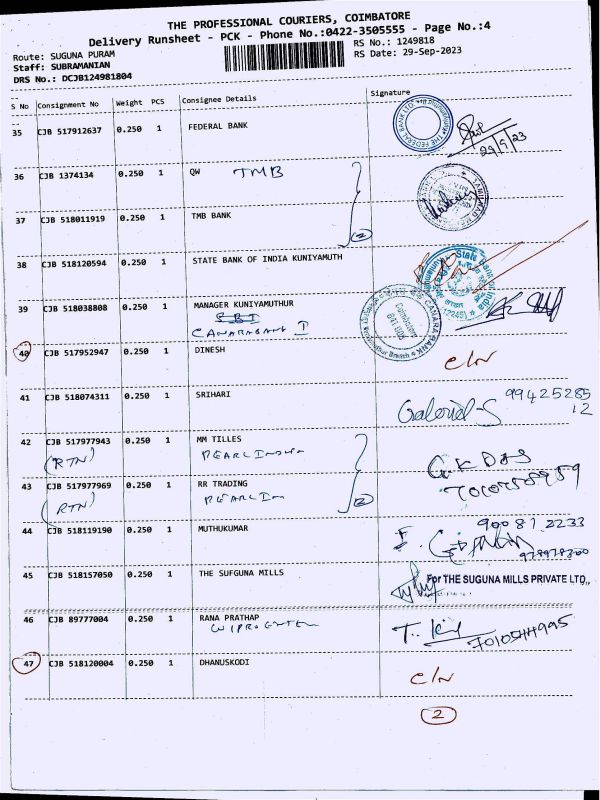 THE PROFESSIONAL COURIERS, COIMBATORE
Delivery Runsheet - PCK - Phone No.:0422-3505555 - Page No.:4
Route: SUGUNA PURAM RS No.: 1249818
Staff: SUBRAMANIAN RS Date: 29-Sep-2023
DRS No.: DCJB124981804
S No Consignment No Weight PCS Consignee Details Signature
35 CJB 517912637 0.250 1 FEDERAL BANK
29/9/23
36 CJB 1374134 0.250 1 QW TMB
37 CJB 518011919 0.250 1 TMB BANK
2
38 CJB 518120594 0.250 1 STATE BANK OF INDIA KUNIYAMUTH
39 CJB 518038808 0.250 1 MANAGER KUNIYAMUTHUR
SBI
CANARABANK I
CANARA BANK
Coimbatore
40 CJB 517952947 0.250 1 DINESH
41 CJB 518074311 0.250 1 SRIHARI 99425285
12
Gabriel-S
42 CJB 517977943 0.250 1 MM TILLES
(RTN)
43 CJB 517977969 0.250 1 RR TRADING
(RTN) 2
44 CJB 518119190 0.250 1 MUTHUKUMAR 90081 2233
45 CJB 518157050 0.250 1 THE SUFGUNA MILLS For THE SUGUNA MILLS PRIVATE LTD.,
46 CJB 89777004 0.250 1 RANA PRATHAP
47 CJB 518120004 0.250 1 DHANUSKODI
2